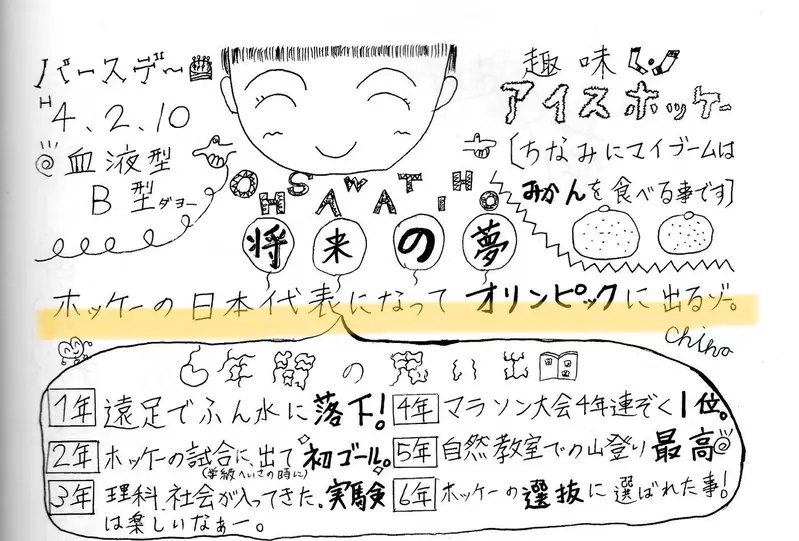 バースデー
H4.2.10
血液型
B型ダヨー
趣味
アイスホッケー
[ちなみにマイブームは
みかんを食べる事です]
OHSAWA TIHO
将来の夢
ホッケーの日本代表になって オリンピックに出るゾ。
Chiho
6年間の思い出
1年 遠足でふん水に落下!
2年 ホッケーの試合に、出て初ゴール。
(学級へいさの時に)
3年 理科、社会が入ってきた。実験
は楽しいなぁー。
4年 マラソン大会4年連ぞく1位。
5年 自然教室での山登り最高
6年 ホッケーの選抜に選ばれた事!